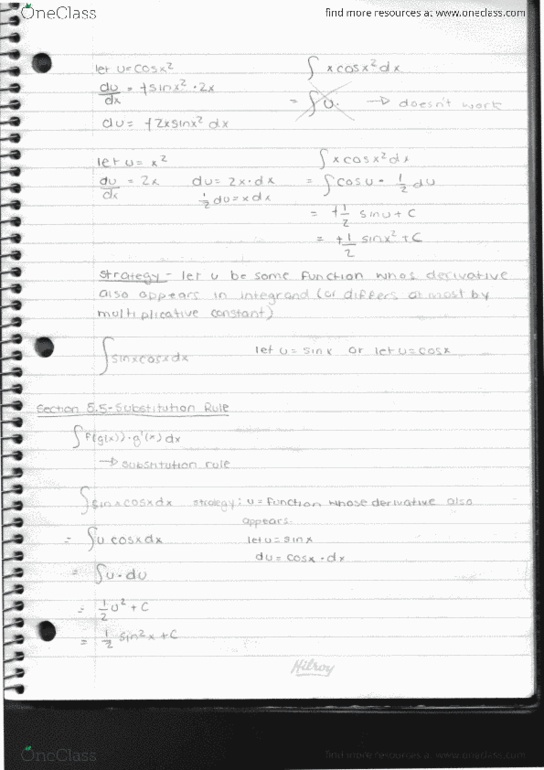 OneClass
find more resources at www.oneclass.com
let u=cosx²
∫xcosx²dx
du/dx = +sinx² · 2x
= ∫u. → doesn't work
du= +2xsinx² dx
let u= x²
∫xcosx²dx
du/dx = 2x
du= 2x·dx
= ∫cosu · 1/2 du
1/2 du=xdx
= +1/2 sinu+C
= +1/2 sinx²+C
strategy - let u be some function whos derivative
also appears in integrand (or differs at most by
multiplicative constant)
∫sinxcosxdx
let u=sinx or let u=cosx
Section 5.5-Substitution Rule
∫f(g(x))·g'(x)dx
→ substitution rule
∫sinxcosxdx strategy: u=function whose derivative also
appears.
= ∫u cosxdx
let u=sinx
du=cosx·dx
= ∫u·du
= 1/2 u² + C
= 1/2 sin²x+C
Hilroy
OneClass
find more resources at www.oneclass.com